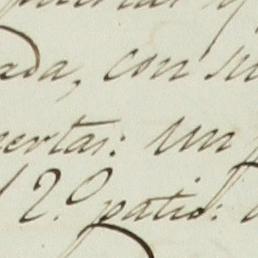 ada, con su
ertas: un
12.º patio: